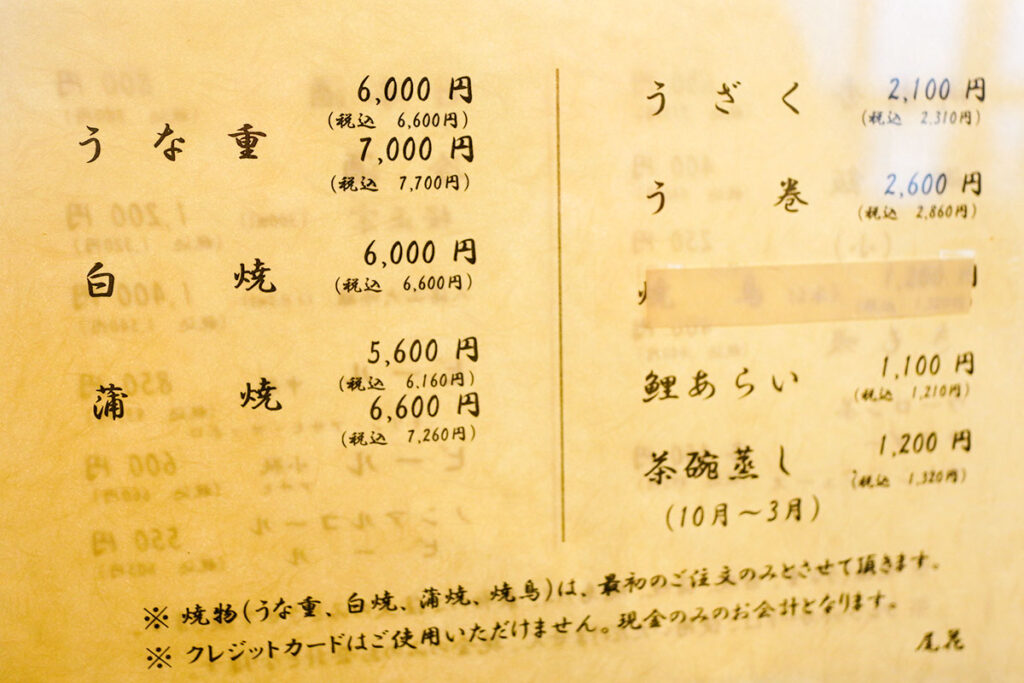 うな重
6,000 円
(税込 6,600円)
7,000 円
(税込 7,700円)
白焼
6,000 円
(税込 6,600円)
蒲焼
5,600 円
(税込 6,160円)
6,600 円
(税込 7,260円)
うざく
2,100 円
(税込 2,310円)
う巻
2,600 円
(税込 2,860円)
鯉あらい
1,100 円
(税込 1,210円)
茶碗蒸し
1,200 円
(税込 1,320円)
(10月~3月)
※ 焼物(うな重、白焼、蒲焼、焼鳥)は、最初のご注文のみとさせて頂きます。
※ クレジットカードはご使用いただけません。現金のみのお会計となります。
尾花